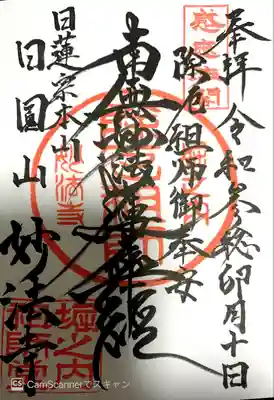 奉拝 令和参穐卯月十日
除厄祖師御奉安
南無妙法蓮華経
日蓮宗本山
日圓山 妙法寺
堀之内
CS CamScannerでスキャン